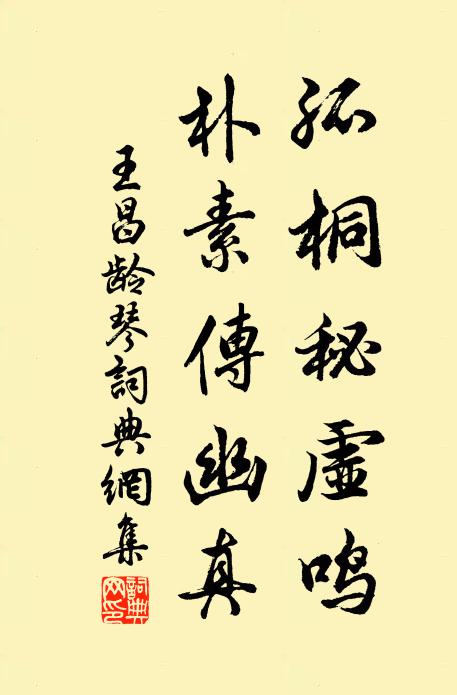 孤桐秘虚鸣
朴素傳幽真
王昌龄琴詞典網集
詞典网印